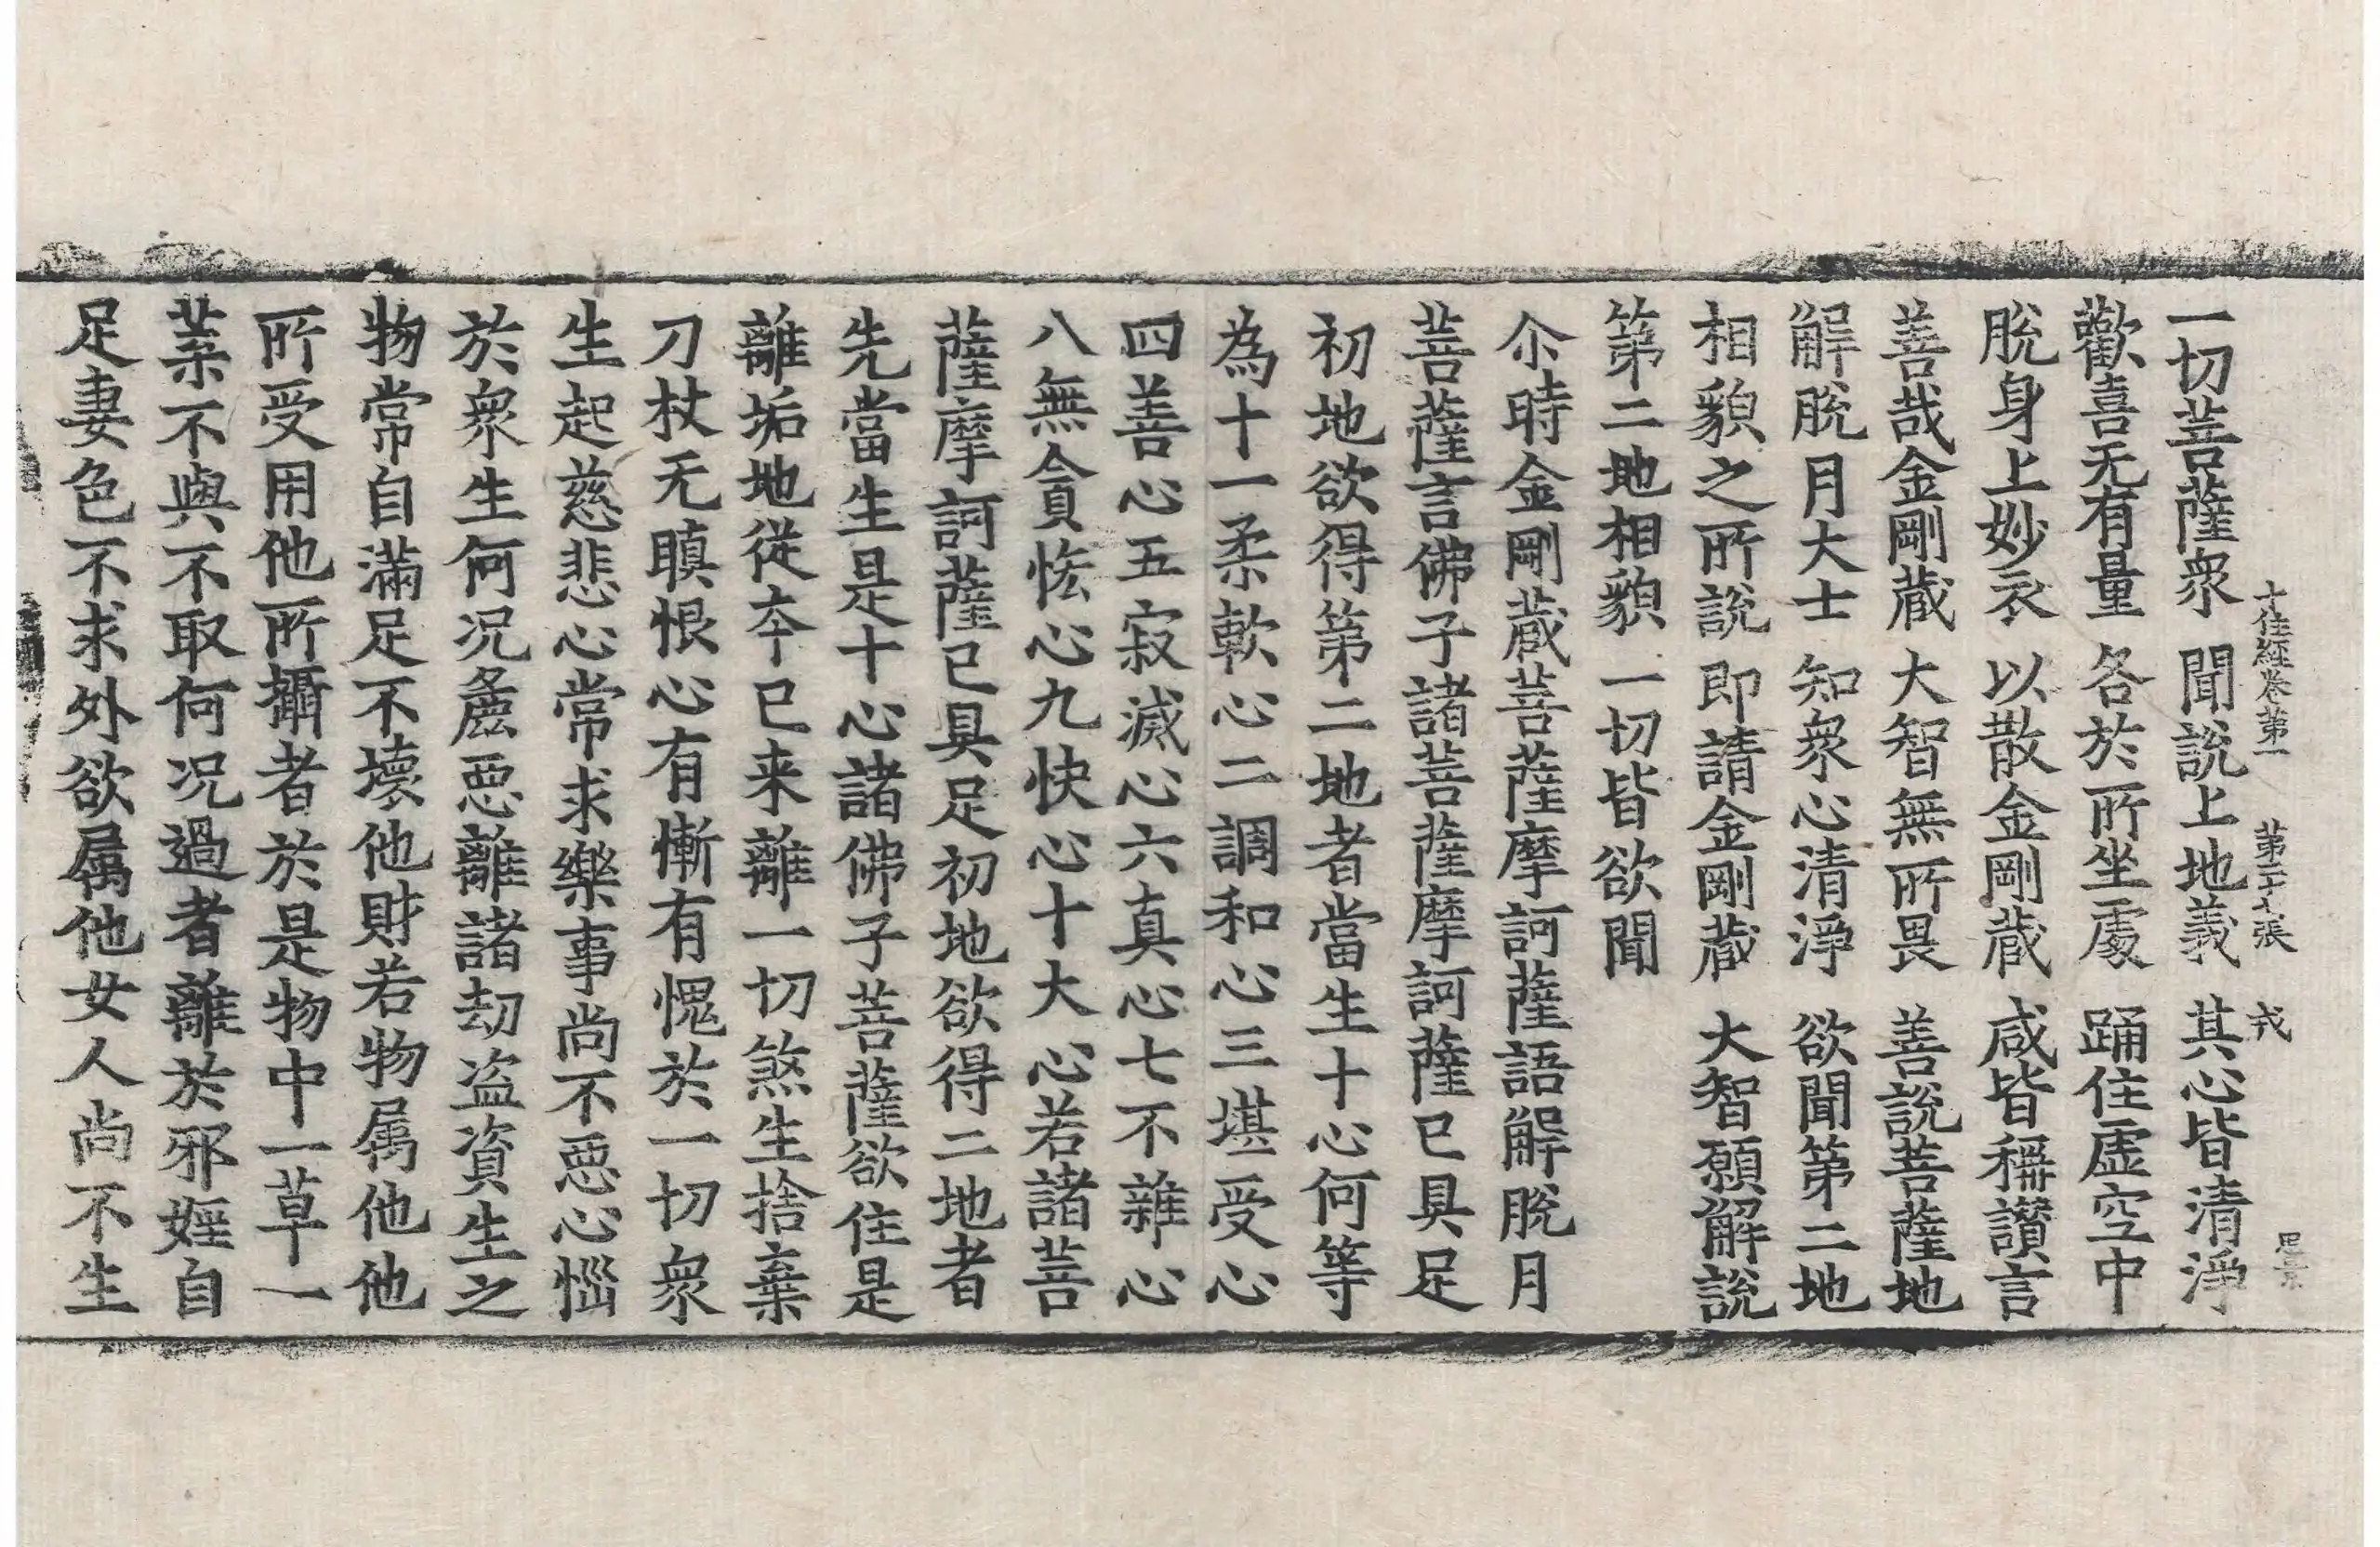 十住經卷第一 第二十七張 戎
一切菩薩衆 聞説上地義 其心皆清淨
歡喜无有量 各於所坐處 踊住虛空中
脫身上妙衣 以散金剛蔵 咸皆稱讃言
善哉金剛蔵 大智無所畏 善說菩薩地
解脫月大士 知衆心清淨 欲聞第二地
相貌之所說 即請金剛蔵 大智願解說
第二地相貌 一切皆欲聞
尒時金剛蔵菩薩摩訶薩語解脫月
菩薩言佛子諸菩薩摩訶薩已具足
初地欲得第二地者當生十心何等
為十一柔軟心二調和心三堪受心
四善心五寂滅心六真心七不雜心
八無貪恡心九快心十大心若諸菩
薩摩訶薩已具足初地欲得二地者
先當生是十心諸佛子菩薩欲住是
離垢地從夲已来離一切煞生捨棄
刀杖无瞋恨心有慚有愧於一切衆
生起慈悲心常求樂事尚不惡心惱
於衆生何况麁惡離諸劫盜資生之
物常自滿足不壞他財若物属他他
所受用他所攝者於是物中一草一
葉不與不取何况過者離於邪婬自
足妻色不求外欲属他女人尚不生